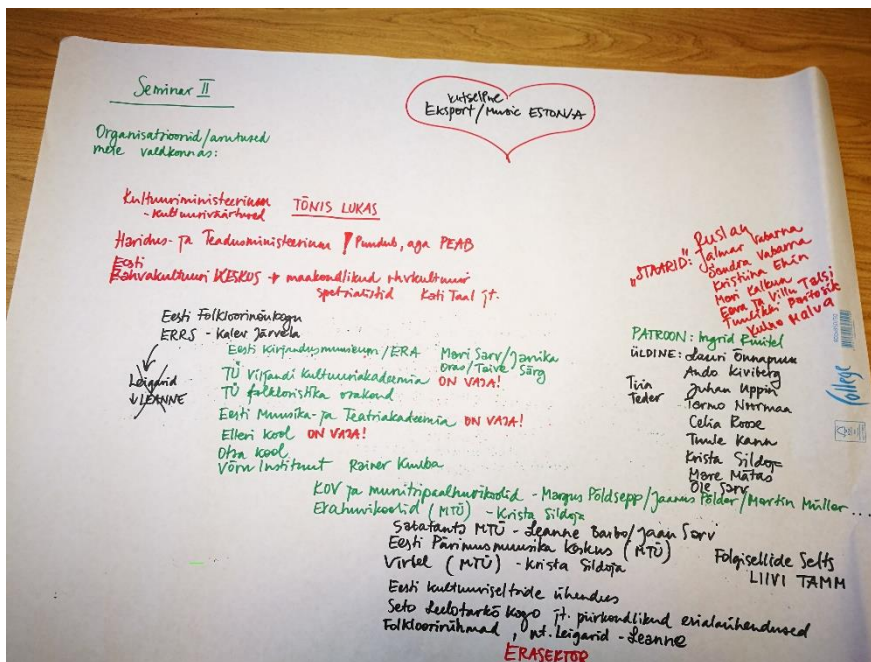 Seminar II
Kutseline
Eksport/Music ESTONIA
Organisatsioonid/arutused
meie valdkonnas:
Kultuuriministeerium TÕNIS LUKAS
- Kultuuriväärtused
Haridus- ja Teadusministeerium ! Puudub, aga PEAB
Eesti
Rahvakultuuri KESKUS + maakondlikud rhvkultuuri
spetsialistid Kati Taal jt.
Eesti Folkloorinõukogu
ERRS - Kalev Järvela
Leigarid
LEANNE
Eesti Kirjandusmuuseum/ERA Mari Sarv/Janika
Oras/Taive Särg
TÜ Viljandi Kultuuriakadeemia ON VAJA!
TÜ folkloristika osakond
Eesti Muusika- ja Teatriakadeemia ON VAJA!
Elleri Kool ON VAJA!
Otsa Kool
Võru Instituut Rainer Kuuba
KOV ja munitsipaalhuvikoolid - Margus Põldsepp/Jaanus Põlder/Martin Müller...
Erahuvikoolid (MTÜ) - Krista Sildoja
Sabatants MTÜ - Leanne Barbo/Jaan Sarv
Eesti Pärimusmuusika Keskus (MTÜ)
Virbel (MTÜ) - Krista Sildoja
Folgisellide Selts
LIIVI TAMM
Eesti kultuuriseltside ühendus
Seto Leelotarkõ Kogo jt. piirkondlikud erialaühendused
Folkloorirühmad, nt. Leigarid - Leanne
ERASEKTOR
"STAARID": Ruslan
Jalmar Vabarna
Sandra Vabarna
Kristiina Ehin
Mari Kalkun
Eeva ja Villu Talsi
Tuulikki Bartosik
Kulno Malva
PATROON: Ingrid Rüütel
ÜLDINE: Lauri Õunapuu
Ando Kiviberg
Tiia
Teder
Juhan Uppin
Tarmo Noormaa
Celia Roose
Tuule Kann
Krista Sildoja
Mare Mätas
Ole Sarv
College